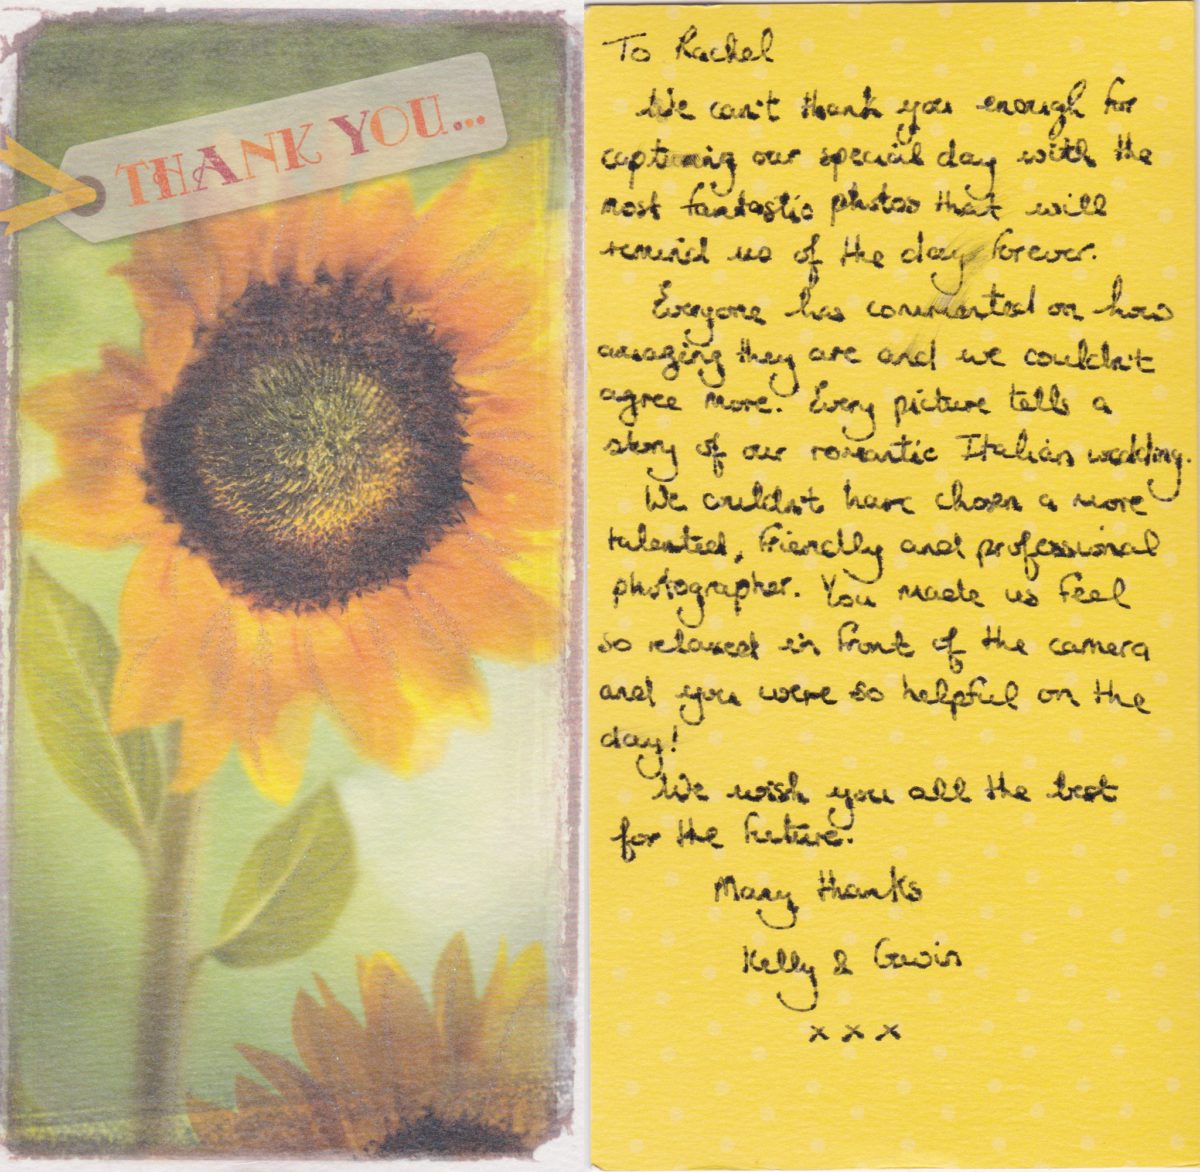 THANK YOU...
To Rachel
We can't thank you enough for
capturing our special day with the
most fantastic photos that will
remind us of the day forever.
Everyone has commented on how
amazing they are and we couldn't
agree more. Every picture tells a
story of our romantic Italian wedding.
We couldn't have chosen a more
talented, friendly and professional
photographer. You made us feel
so relaxed in front of the camera
and you were so helpful on the
day!
We wish you all the best
for the future.
Many thanks
Kelly & Gwin
x x x